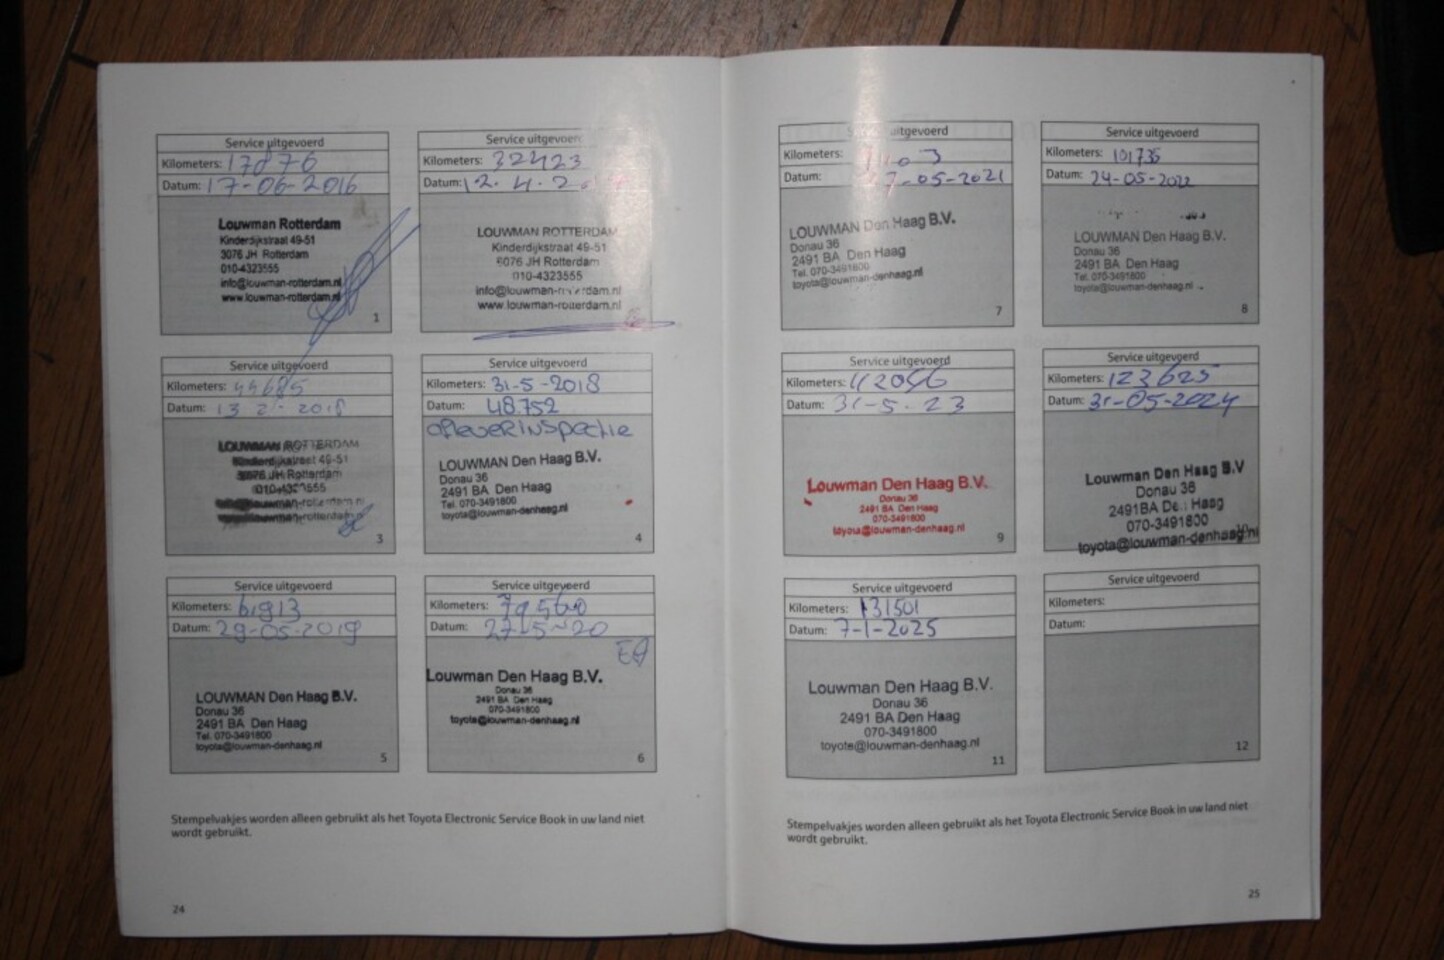 Service uitgevoerd
Kilometers: 17876
Datum: 17-06-2016
Louwman Rotterdam
Kinderdijkstraat 49-51
3076 JH Rotterdam
010-4323555
info@louwman-rotterdam.nl
www.louwman-rotterdam.nl
1
Service uitgevoerd
Kilometers: 32423
Datum: 12.4.2
LOUWMAN ROTTERDAM
Kinderdijkstraat 49-51
3076 JH Rotterdam
010-4323555
info@louwman-rotterdam.nl
www.louwman-rotterdam.nl
Service uitgevoerd
Kilometers: 44685
Datum: 13 2 - 2018
LOUWMAN ROTTERDAM
Kinderdijkstraat 49-51
3076 JH Rotterdam
010-4323555
3
Service uitgevoerd
Kilometers: 31-5-2018
Datum: 48.752
afleverinspectie
LOUWMAN Den Haag B.V.
Donau 36
2491 BA Den Haag
Tel. 070-3491800
toyota@louwman-denhaag.nl
4
Service uitgevoerd
Kilometers: 61913
Datum: 29-05-2019
LOUWMAN Den Haag B.V.
Donau 36
2491 BA Den Haag
Tel. 070-3491800
toyota@louwman-denhaag.nl
5
Service uitgevoerd
Kilometers: 79560
Datum: 27-5-20
Louwman Den Haag B.V.
Donau 36
2491 BA Den Haag
070-3491800
toyota@louwman-denhaag.nl
6
Stempelvakjes worden alleen gebruikt als het Toyota Electronic Service Book in uw land niet
wordt gebruikt.
24
Service uitgevoerd
Kilometers:
Datum: 27-05-2021
LOUWMAN Den Haag B.V.
Donau 36
2491 BA Den Haag
Tel. 070-3491800
toyota@louwman-denhaag.nl
7
Service uitgevoerd
Kilometers: 101735
Datum: 24-05-2022
LOUWMAN Den Haag B.V.
Donau 36
2491 BA Den Haag
Tel. 070-3491800
toyota@louwman-denhaag.nl
8
Service uitgevoerd
Kilometers: 112056
Datum: 31-5-23
Louwman Den Haag B.V.
Donau 36
2491 BA Den Haag
070-3491800
toyota@louwman-denhaag.nl
9
Service uitgevoerd
Kilometers: 123625
Datum: 31-05-2024
Louwman Den Haag B.V
Donau 36
2491BA Den Haag
070-3491800
toyota@louwman-denhaag.nl
10
Service uitgevoerd
Kilometers: 131501
Datum: 7-1-2025
Louwman Den Haag B.V.
Donau 36
2491 BA Den Haag
070-3491800
toyota@louwman-denhaag.nl
11
Service uitgevoerd
Kilometers:
Datum:
12
Stempelvakjes worden alleen gebruikt als het Toyota Electronic Service Book in uw land niet
wordt gebruikt.
25